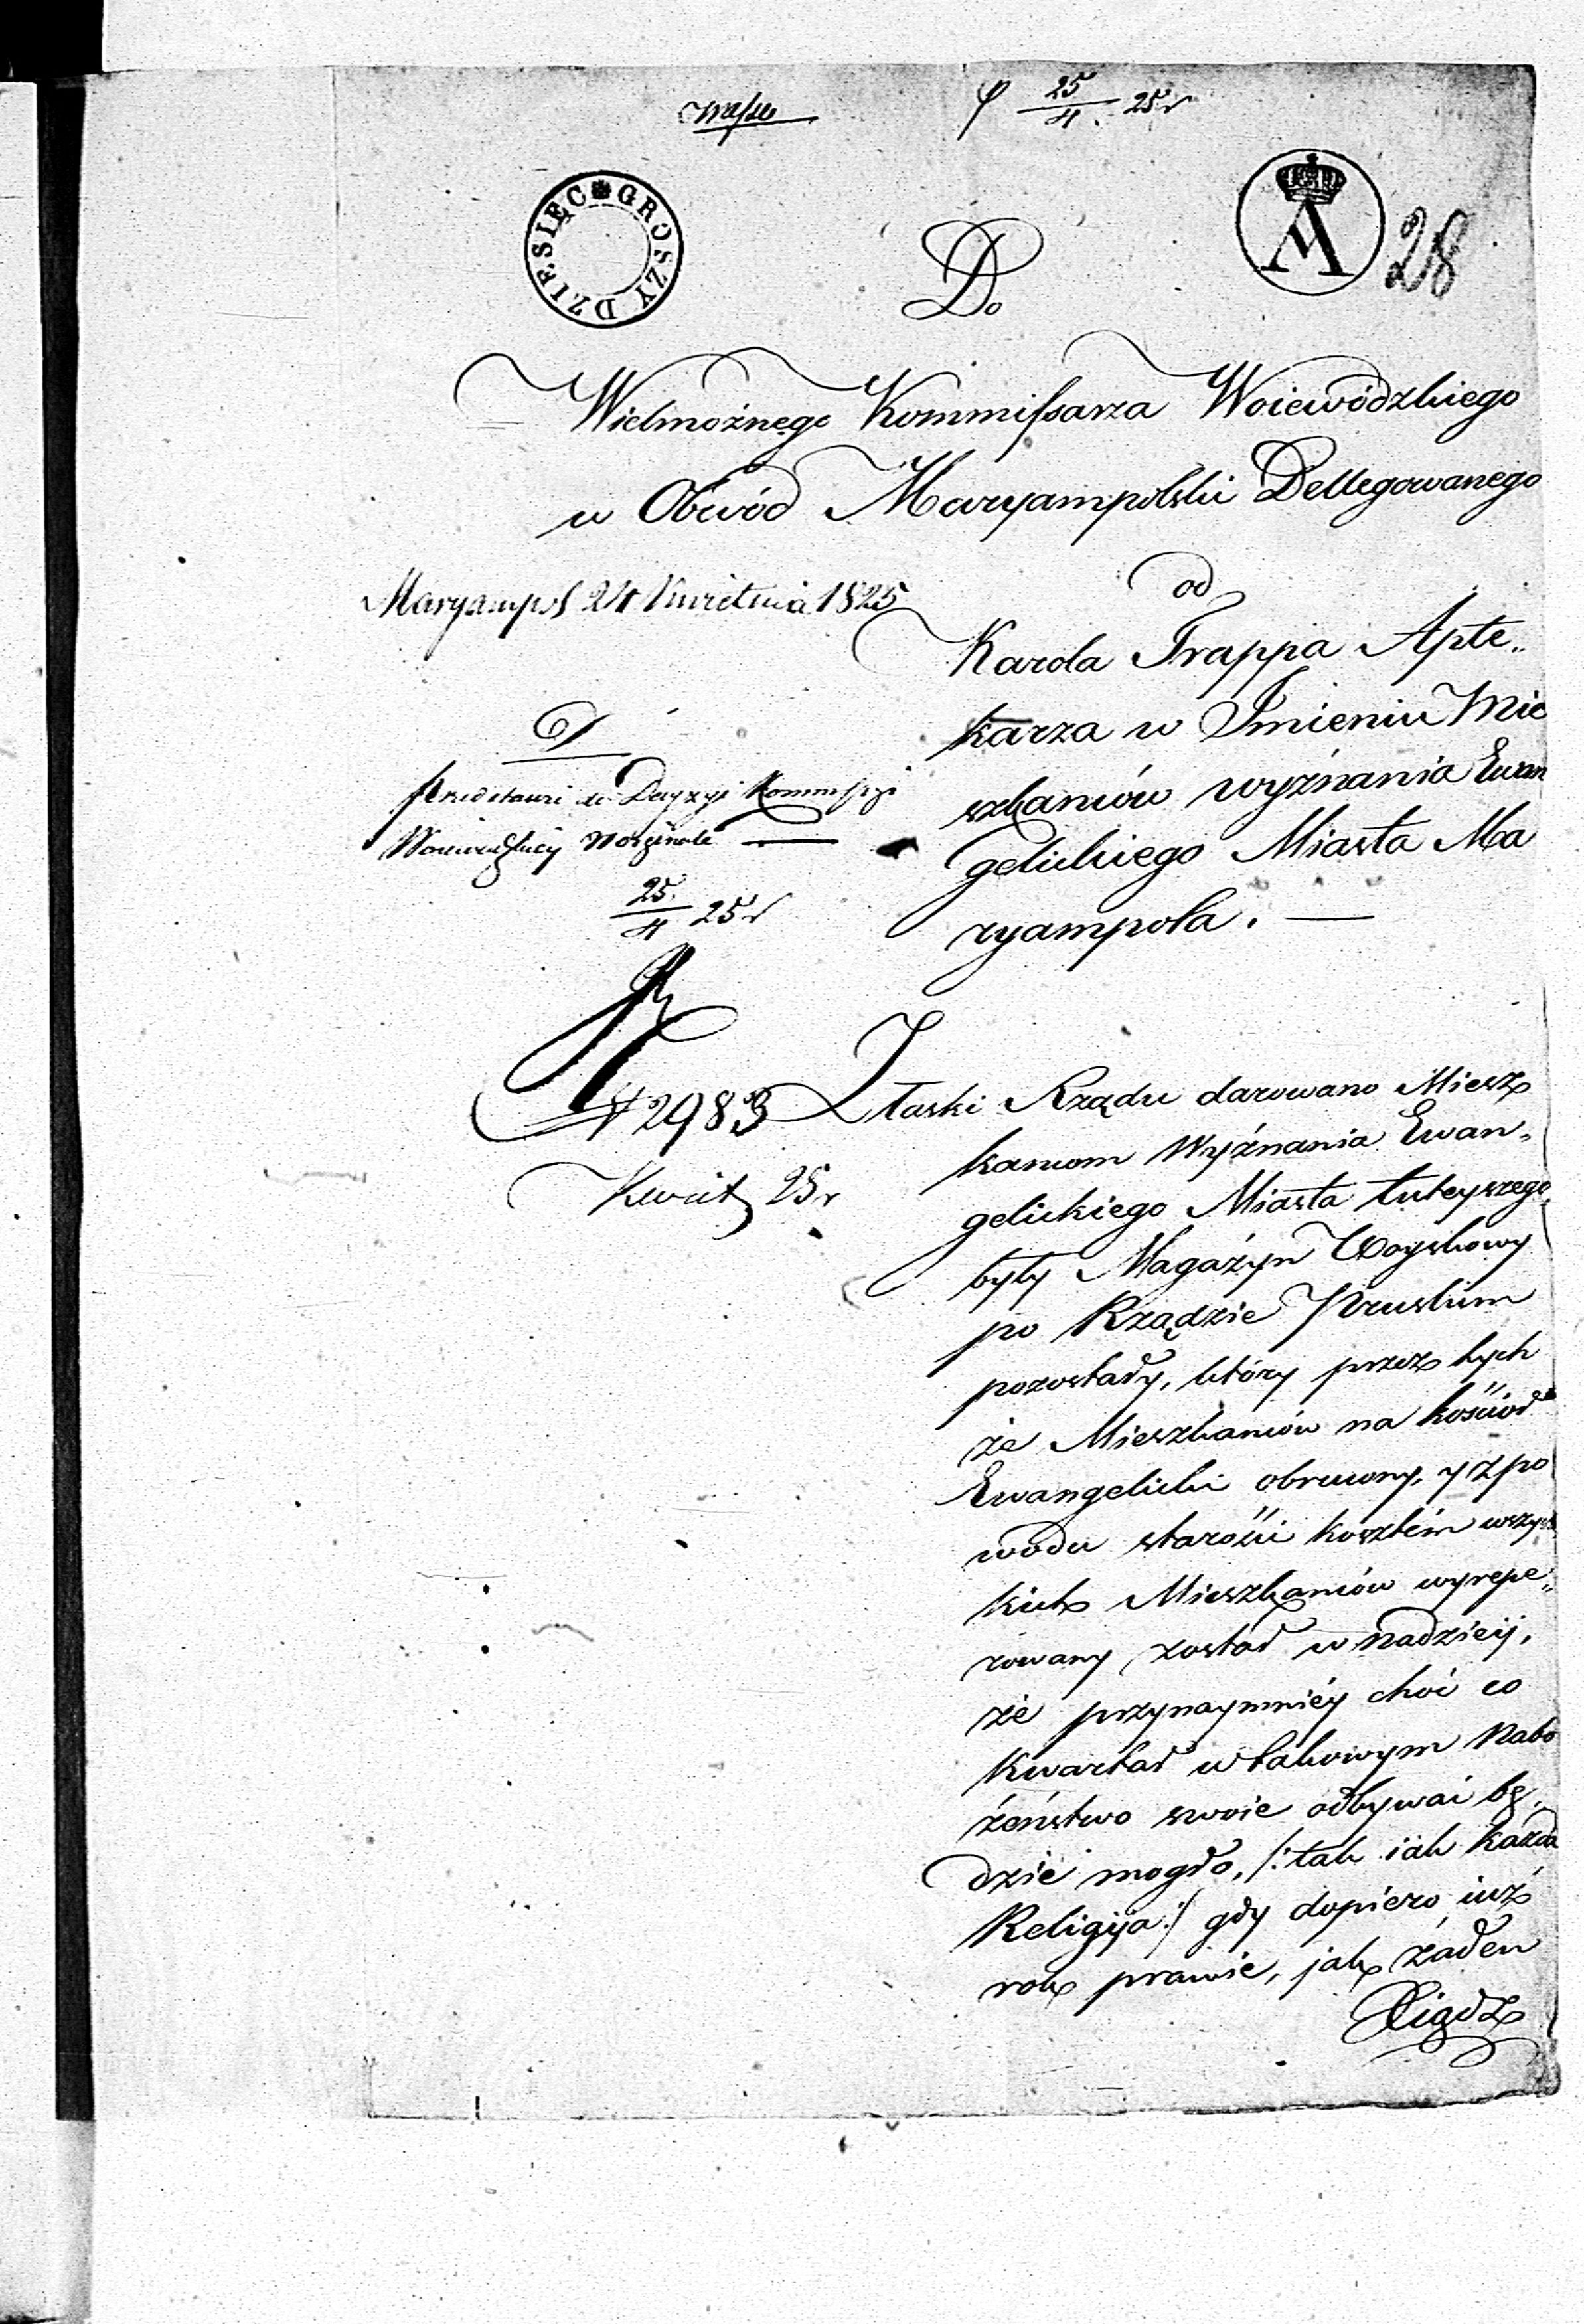 25/4. 25 r
DZIESIĘC GROSZY
A
28
Do
Wielmożnego Kommissarza Woiewódzkiego
w Obwód Maryampolski Dellegowanego
Maryampol 24 Kwietnia 1825
od
Karola Trappa Apte„
karza w Imieniu Mie
szkanców wyźnania Ewan
gelickiego Miasta Ma
ryampola. —
Przedstawić do Decyzyi Kommissyi
Woiewodzkiey w orginale —
25/4 25 r
N 2983
Kwiet 25 r
Z łaski Rządu darowano Miesz
kancom Wyźnania Ewan„
gelickiego Miasta tuteyszego
były Magaźyn Woyskowy
po Rządzie Pruskim
pozostały, który przez tych
że Mieszkanców na kościoł
Ewangelicki obrucony, y z po
wodu starości kosztém wszyst
kich Mieszkanców wyrepe„
rowany został w nadzieij,
że przynaymniéy choć co
kwartał w takowym Nabo
żeństwo swoie odbywać bę„
dzie mogło, /: tak iak każda
Religija :/ gdy dopiero iuż
rok prawie, jak żaden
Xiądz